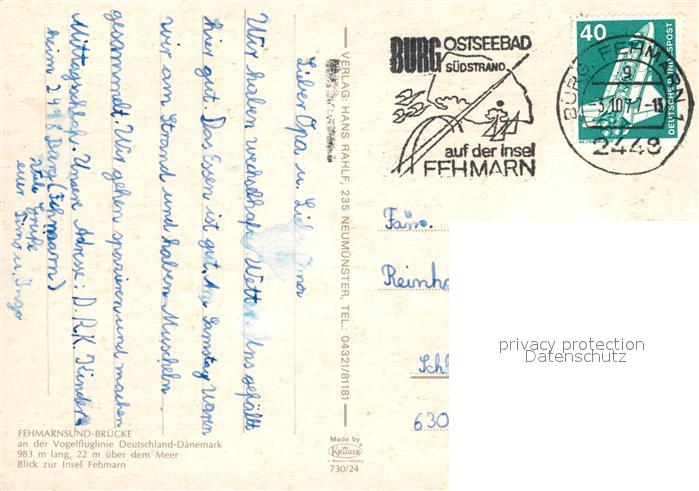 Lieber Opa u. Liebe Oma
Wir haben wechselhaft Wetter. Uns gefällt
hier gut. Das Essen ist gut. Am Samstag waren
wir am Strand und haben Muscheln
gesammelt. Wir gehen spazieren und machen
Mittagsschlaf. Unsere Adresse: D.R.K. Kinder-
heim 2448 (Fehmarn)
Viele Grüße
euer Timo u. Ingo
FEHMARNSUND-BRÜCKE
an der Vogelfluglinie Deutschland-Dänemark
983 m lang, 22 m über dem Meer
Blick zur Insel Fehmarn
VERLAG: HANS RAHLF, 235 NEUMÜNSTER, TEL.: 04321/81181
Made by
KRÜGER
730/24
BURG OSTSEEBAD
SÜDSTRAND
auf der Insel
FEHMARN
40
DEUTSCHE BUNDESPOST
BURG, FEHMARN 1
2448
Fam.
Reinho
Schl
630
privacy protection
Datenschutz